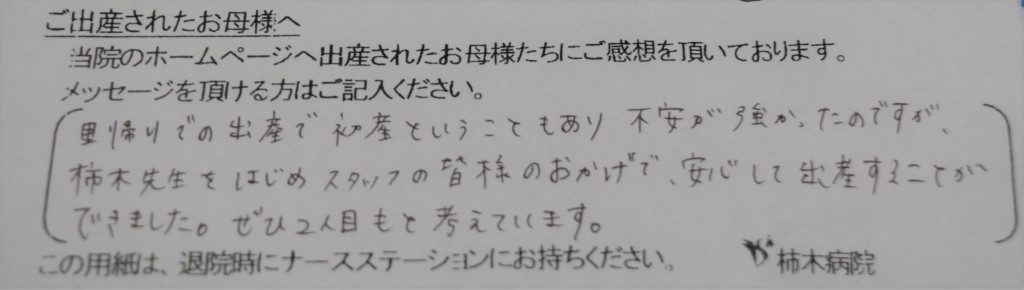 ご出産されたお母様へ
当院のホームページへ出産されたお母様たちにご感想を頂いております。
メッセージを頂ける方はご記入ください。
里帰りでの出産で初産ということもあり不安が強かったのですが、
柿木先生をはじめスタッフの皆様のおかげで、安心して出産することが
できました。ぜひ2人目もと考えています。
この用紙は、退院時にナースステーションにお持ちください。 柿木病院